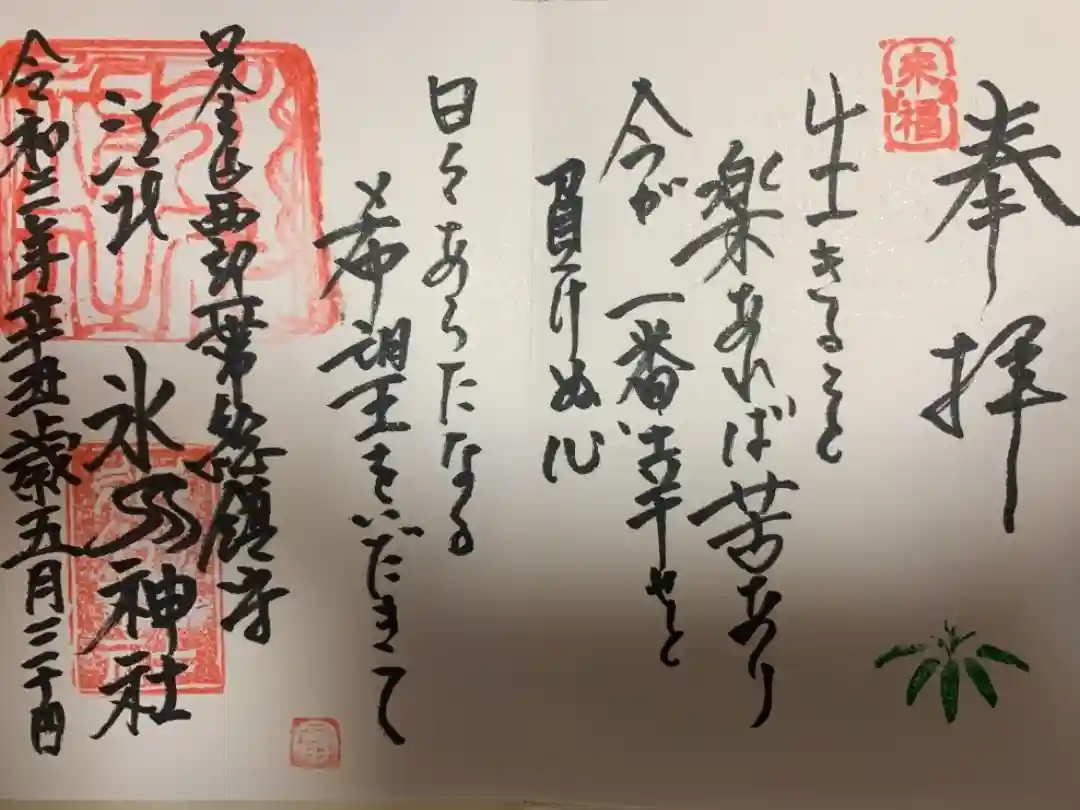 奉拝
来福
生きること
楽あれば苦あり
今が一番幸せと
負けぬ心
日々あらたなる
希望をいだきて
足立区西部一帯総鎮守
江北 氷川神社
令和三年辛丑歳五月二十四日